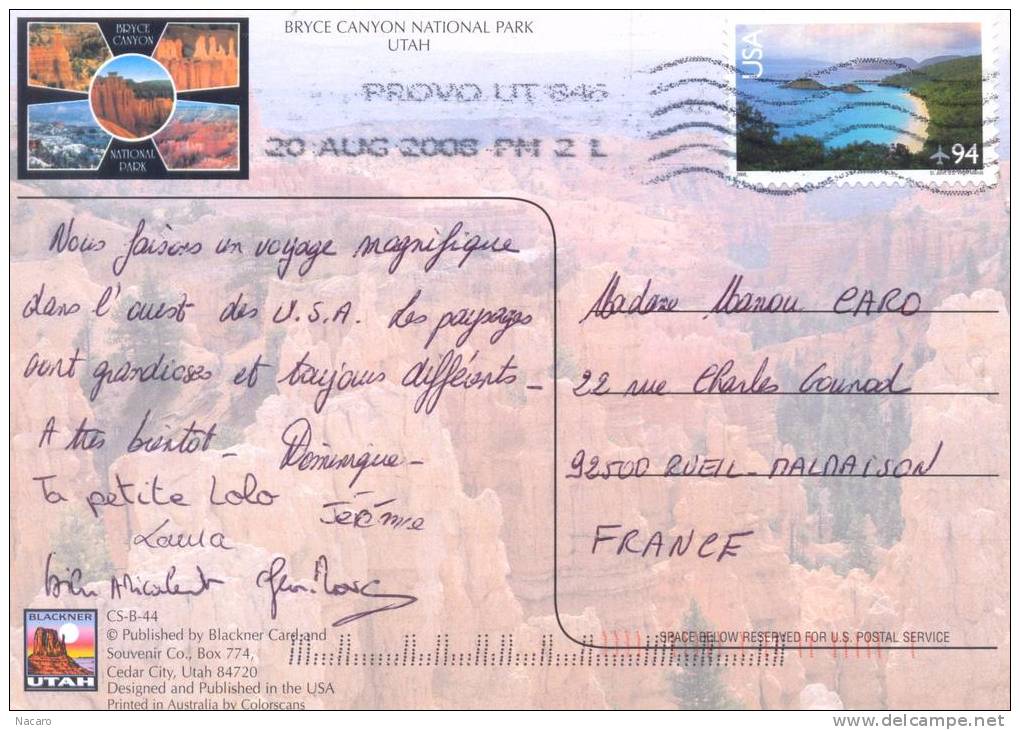 BRYCE CANYON NATIONAL PARK
UTAH
BRYCE
CANYON
NATIONAL
PARK
PROVO UT 846
20 AUG 2008 PM 2 L
USA
94
Nous faisons un voyage magnifique
dans l'ouest des U.S.A. Les paysages
sont grandioses et toujours différents _
A très bientot _ Dominique _
Ta petite Lolo
Jérémie
Laura
Madame Manou CARO
22 rue Charles Gounod
92500 RUEIL-MALMAISON
FRANCE
BLACKNER
UTAH
CS-B-44
© Published by Blackner Card and
Souvenir Co., Box 774,
Cedar City, Utah 84720
Designed and Published in the USA
Printed in Australia by Colorscans
SPACE BELOW RESERVED FOR U.S. POSTAL SERVICE
Nacaro
www.delcampe.net